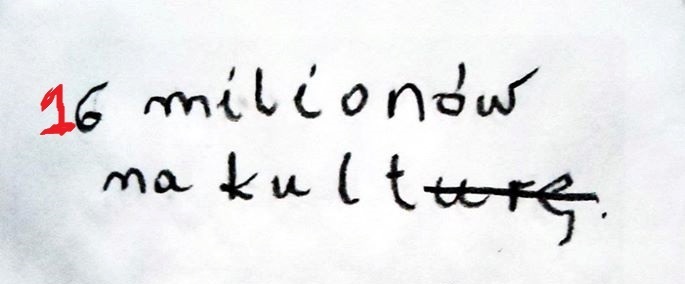 16 milionów
na kulturę.